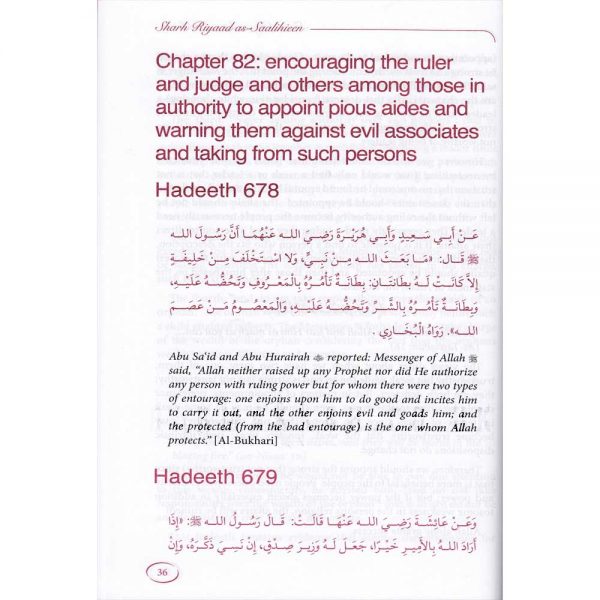 Sharh Riyaad as-Saalihieen
Chapter 82: encouraging the ruler
and judge and others among those in
authority to appoint pious aides and
warning them against evil associates
and taking from such persons
Hadeeth 678
عَنْ أَبِي سَعِيدٍ وَأَبِي هُرَيْرَةَ رَضِيَ اللـه عَنْهُمَا أَنَّ رَسُولَ اللـه
ﷺ قَالَ: «مَا بَعَثَ اللـه مِنْ نَبِيٍّ، وَلا اسْتَخْلَفَ مِنْ خَلِيفَةٍ
إِلاَّ كَانَتْ لَهُ بِطَانَتَانِ: بِطَانَةٌ تَأْمُرُهُ بِالْمَعْرُوفِ وَتَحُضُّهُ عَلَيْهِ،
وَبِطَانَةٌ تَأْمُرُهُ بِالشَّرِّ وَتَحُضُّهُ عَلَيْهِ، وَالْمَعْصُومُ مَنْ عَصَمَ
اللـه». رَوَاهُ الْبُخَارِي .
Abu Sa‘id and Abu Hurairah reported: Messenger of Allah ﷺ
said, “Allah neither raised up any Prophet nor did He authorize
any person with ruling power but for whom there were two types
of entourage: one enjoins upon him to do good and incites him
to carry it out, and the other enjoins evil and goads him; and
the protected (from the bad entourage) is the one whom Allah
protects.” [Al-Bukhari]
Hadeeth 679
وَعَنْ عَائِشَةَ رَضِيَ اللـه عَنْهَا قَالَتْ: قَالَ رَسُولُ اللـه ﷺ: «إِذَا
أَرَادَ اللـهُ بِالأَمِيرِ خَيْرًا، جَعَلَ لَهُ وَزِيرَ صِدْقٍ، إِنْ نَسِيَ ذَكَّرَهُ، وَإِنْ
36